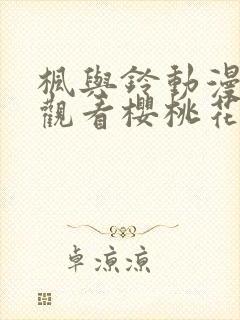 楓與鈴動漫
觀看櫻桃花
卓涼涼